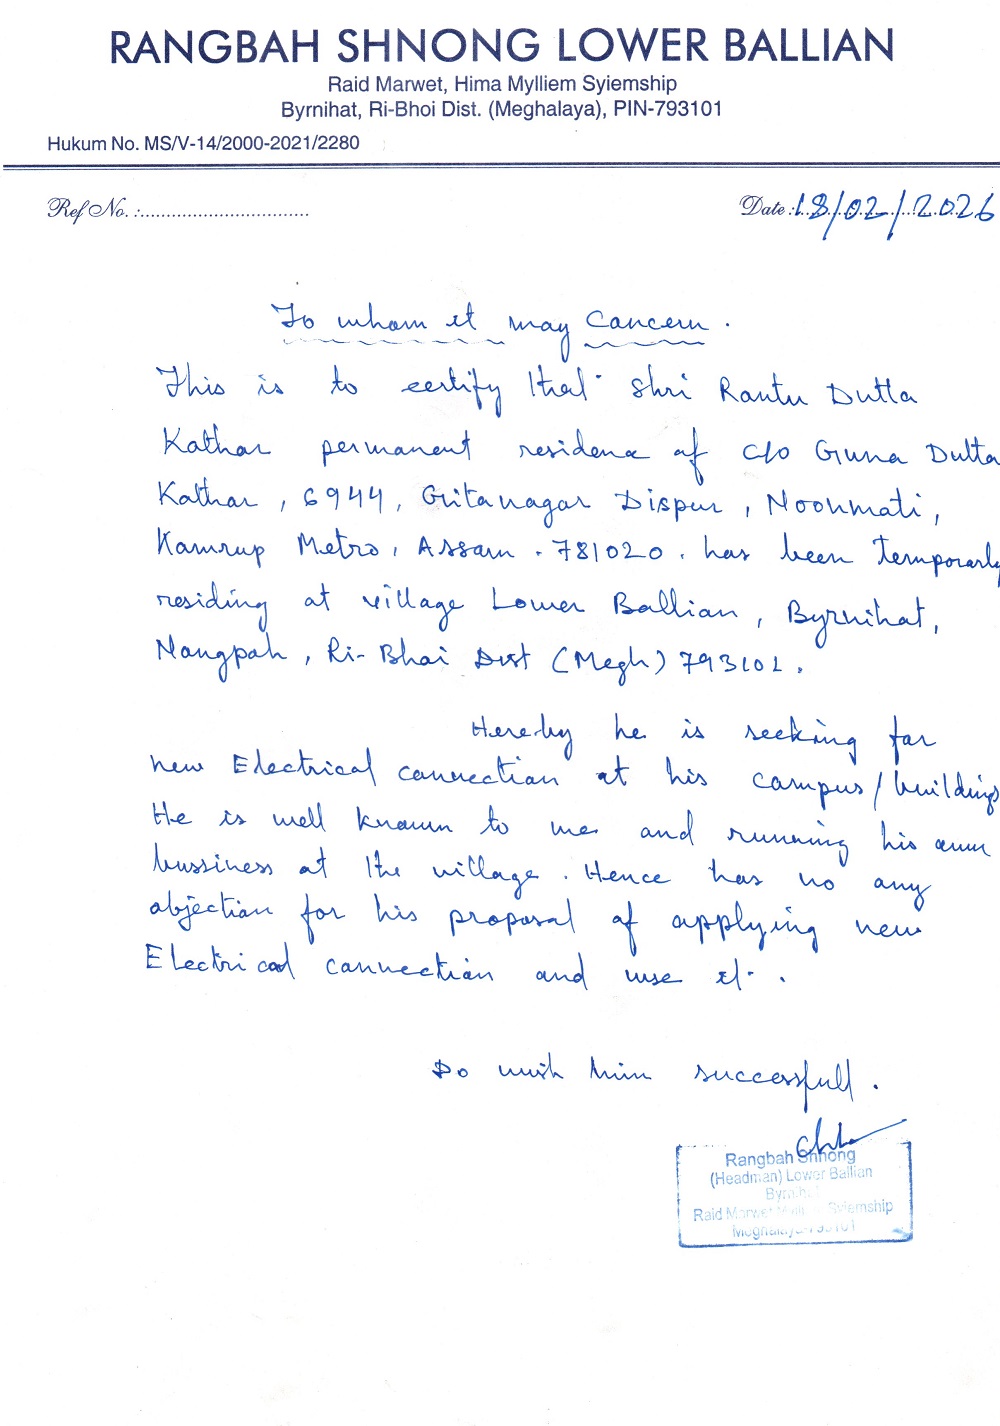 RANGBAH SHNONG LOWER BALLIAN
Raid Marwet, Hima Mylliem Syiemship
Byrnihat, Ri-Bhoi Dist. (Meghalaya), PIN-793101
Hukum No. MS/V-14/2000-2021/2280
Ref No. :................................
Date :18/02/2026
To whom it may Concern.
This is to certify that Shri Rantu Dutta
Kathar permanent residence of C/o Guna Dutta
Kathar, 6944, Gitanagar Dispur, Noonmati,
Kamrup Metro, Assam - 781020. has been temporarly
residing at village Lower Ballian, Byrnihat,
Nongpoh, Ri-Bhoi Dist (Megh) 793101.
Hereby he is seeking for
new Electrical connection at his campus/buildings
He is well known to me and running his own
bussiness at the village. Hence has no any
objection for his proposal of applying new
Electrical connection and use it.
So wish him successfull.
Rangbah Shnong
(Headman) Lower Ballian
Byrnihat
Raid Marwet Syiemship